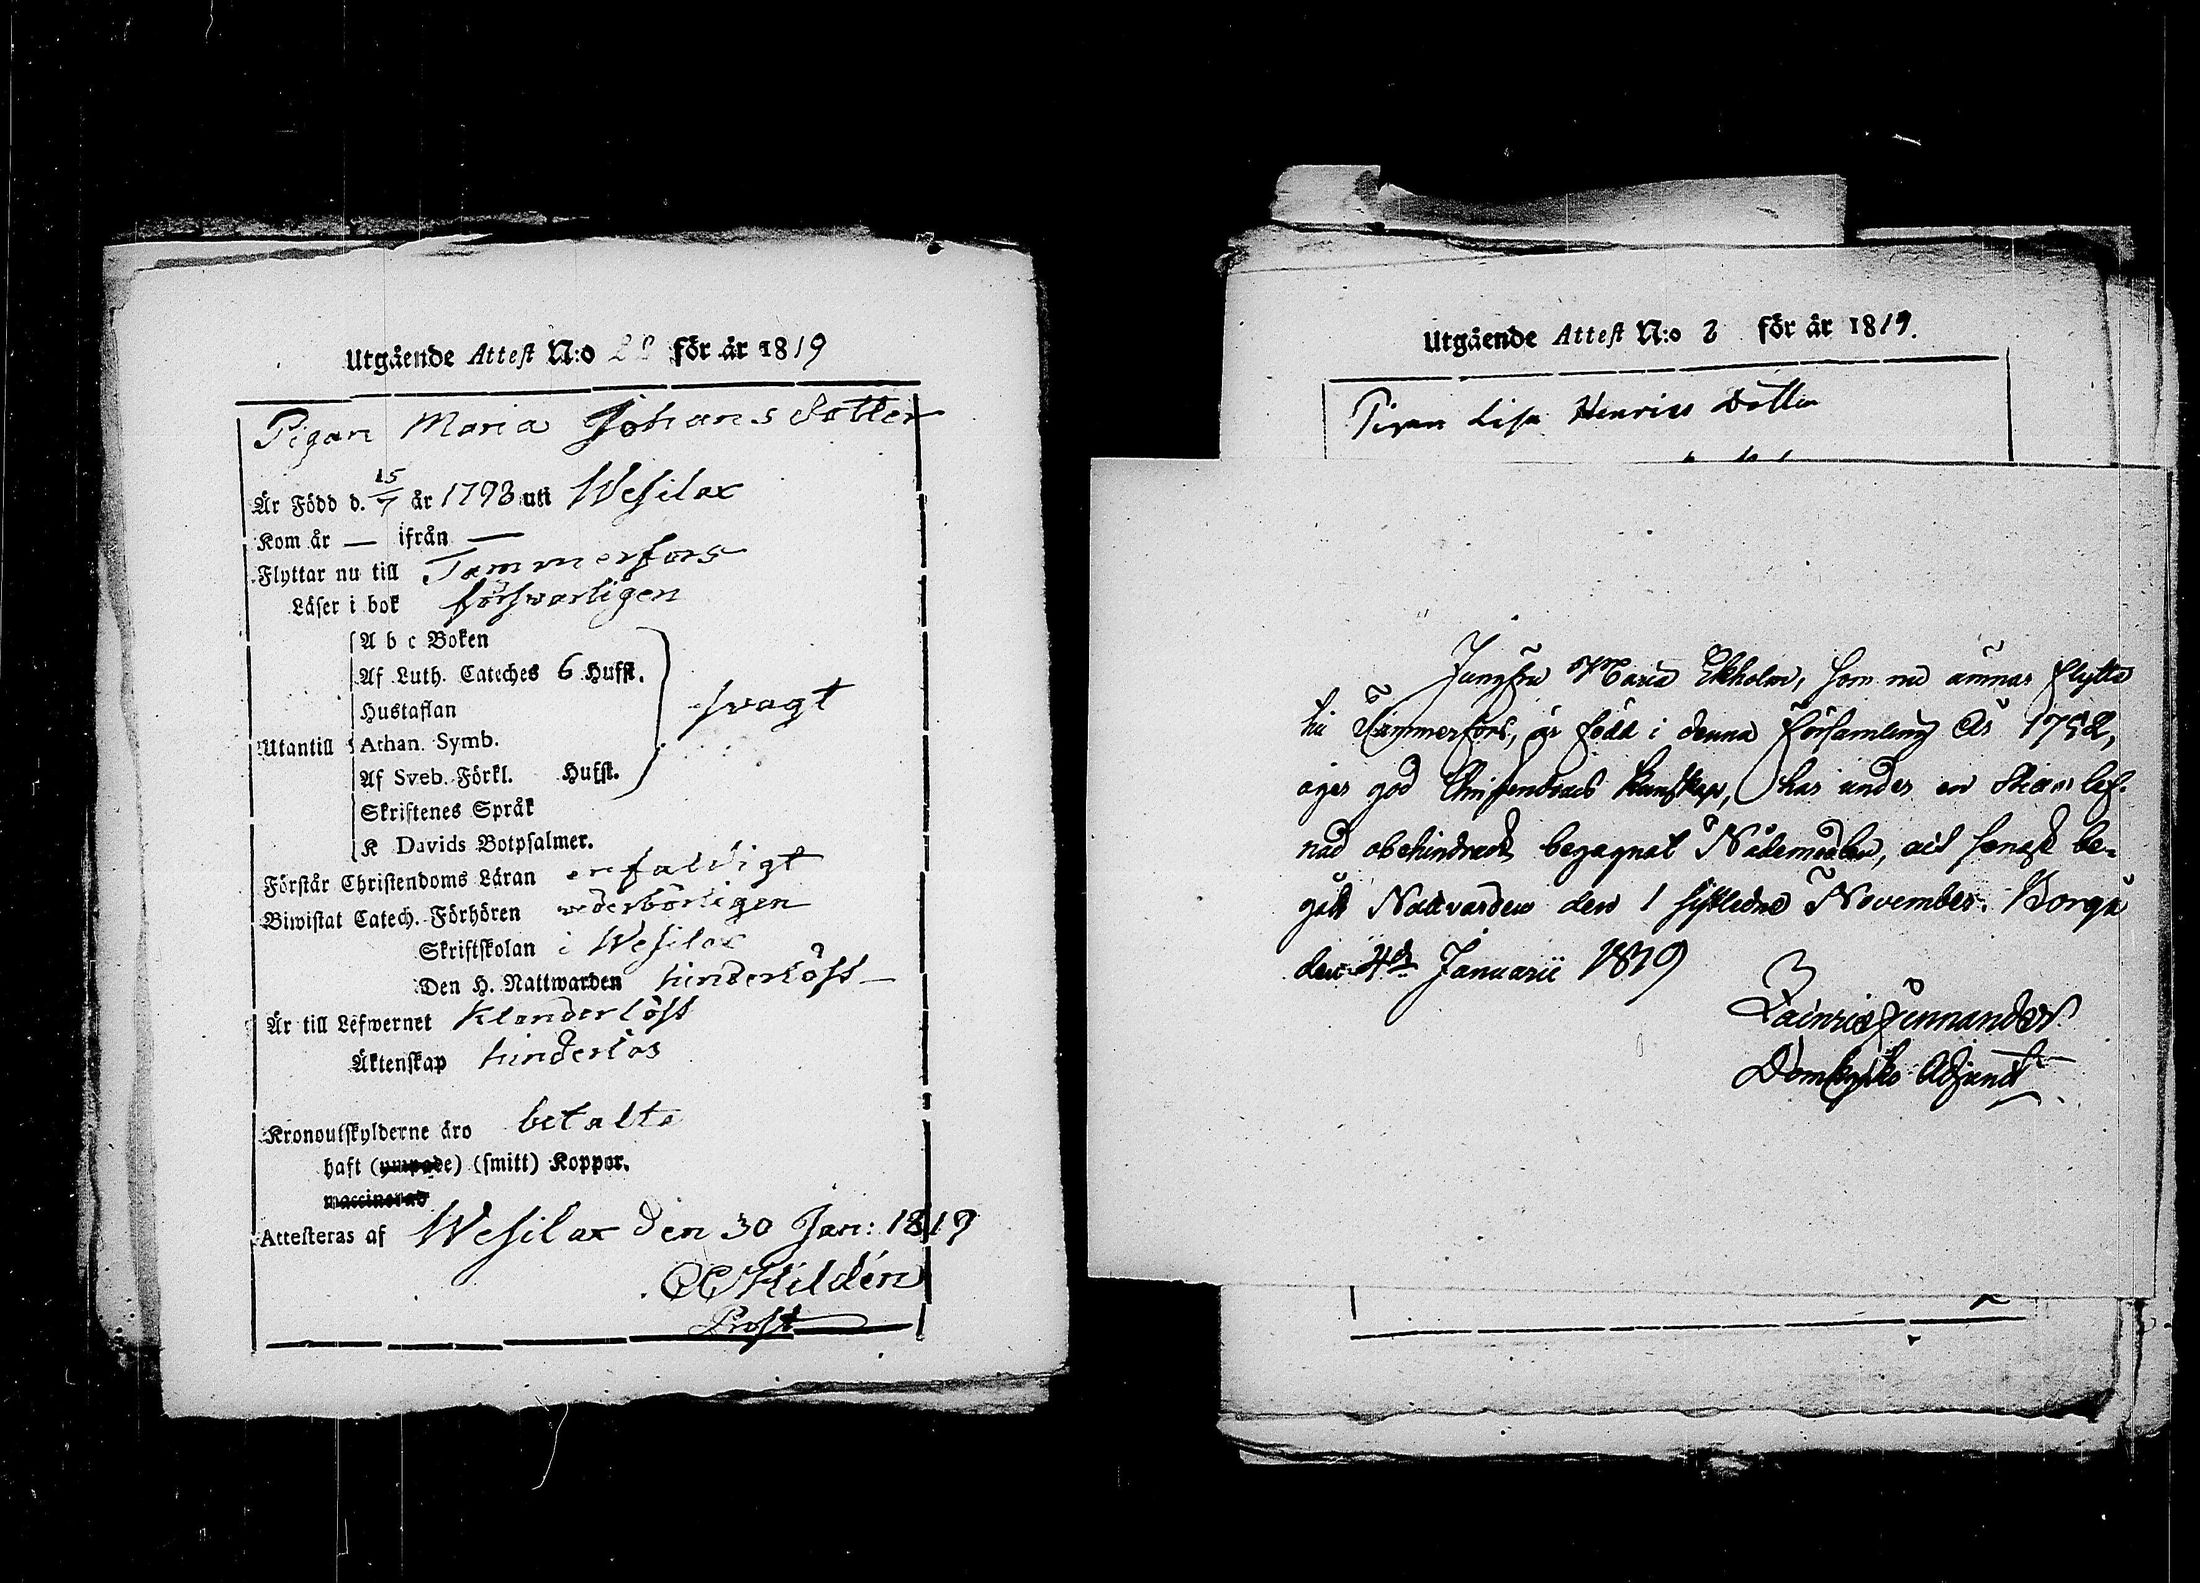 Utgående Attest N:o 22 för år 1819
Pigan Maria Johansdotter
Är Född d. 15/7 år 1793 uti Wesilax
Kom år — ifrån —
Flyttar nu till Tammerfors
Läser i bok försvarligen
Utantill
A b c Boken
Af Luth. Cateches 6 Hufst.
Hustaflan
Athan. Symb.
Af Sveb. Förkl. Hufst.
Skriftenes Språk
K Davids Botpsalmer.
svagt
Förstår Christendoms Läran enfaldigt
Biwistat Catech. Förhören vederbörligen
Skriftskolan i Wesilax
Den H. Nattwarden hinderlöst
Är till Lefwernet klanderlöst
Äktenskap hinderlös
Kronoutskylderne äro betalte
haft (ympade) (smitt) Koppor.
waccinerad
Attesteras af Wesilax den 30 Jan: 1819
Hildén
Prost
Utgående Attest N:o 2 för år 1819.
Pigan Lisa Henrics Dotter
Jungfru Maria Ekholm, som nu ämnar flytta
till Tammerfors, är född i denna Församling År
äger god Christendoms kunskap, har under en lef-
nad obehindradt begagnat Nådemedlen, och senast be-
gått Nattvarden den 1 sistledne November. Borgå
den 4de Januarii 1819
Domkyrko Adjunct